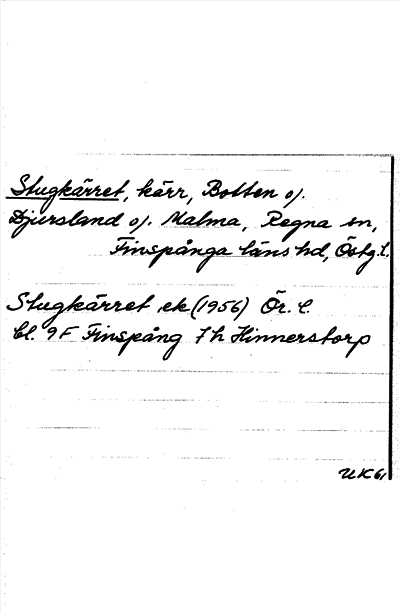 Stugkärret, kärr, Botten o/.
Djursland o/. Malma, Regna sn,
Finspånga läns hd, Östg.l.
Stugkärret ek (1956) Ör. l.
bl. 9F Finspång 7h Hinnerstorp
UK61